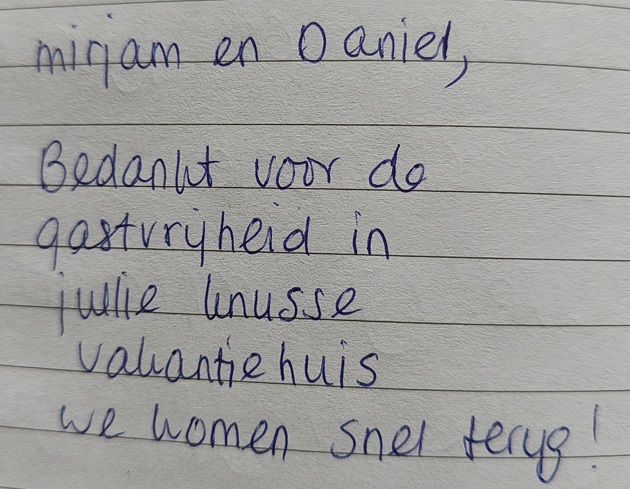 mirjam en Daniel,
Bedankt voor de
gastvrijheid in
jullie knusse
vakantiehuis
we komen snel terug!